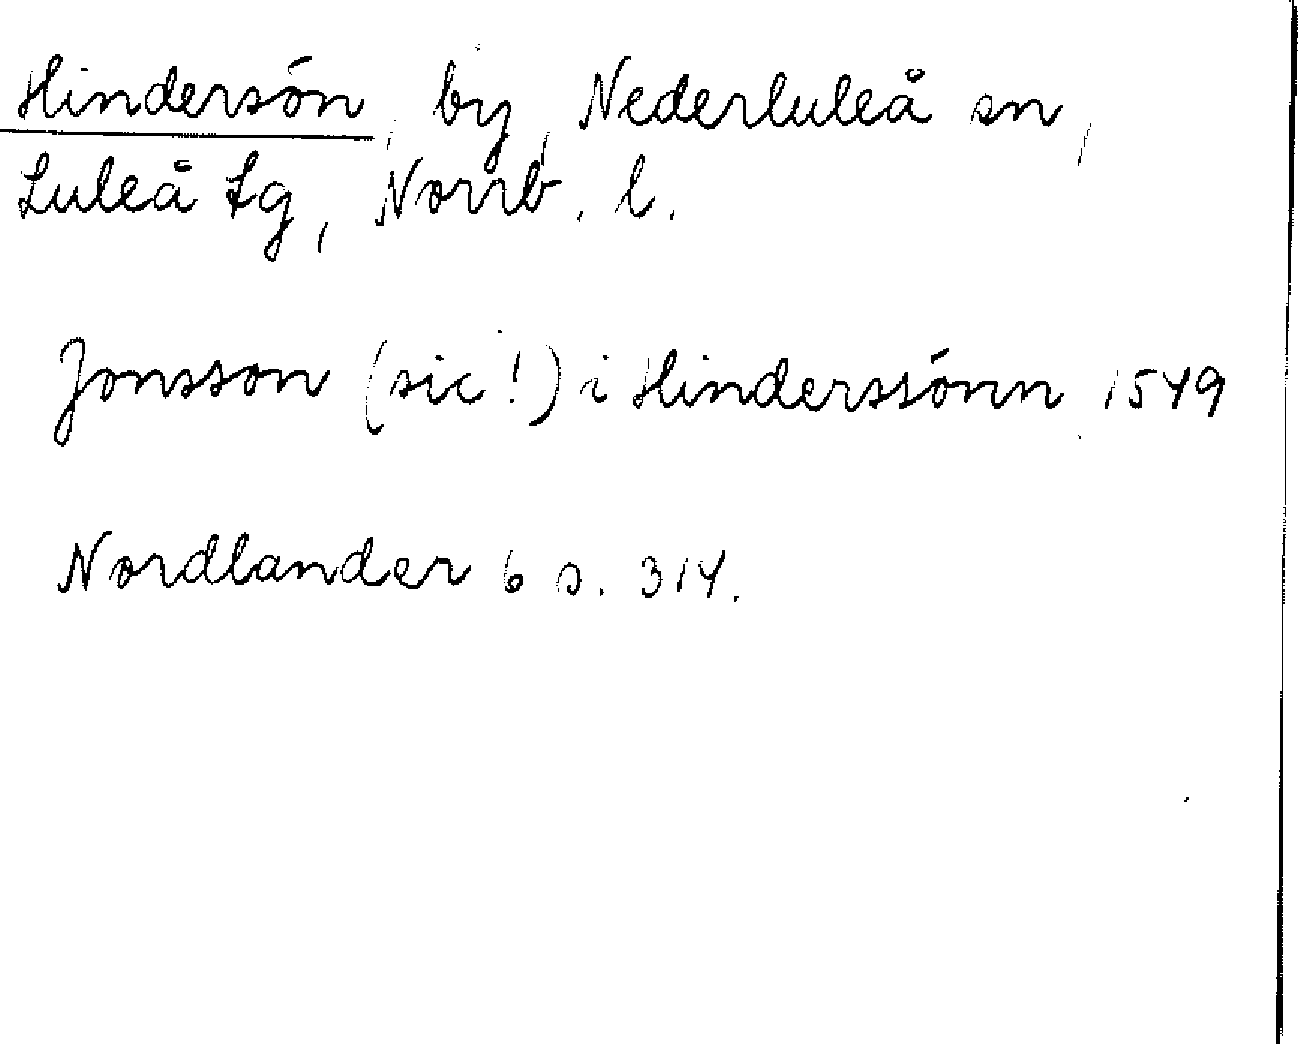 Hindersön, by, Nederluleå sn,
Luleå tg, Norrb. l.
Jonsson (sic!) i Hinderssönn 1549
Nordlander 6 s. 314.